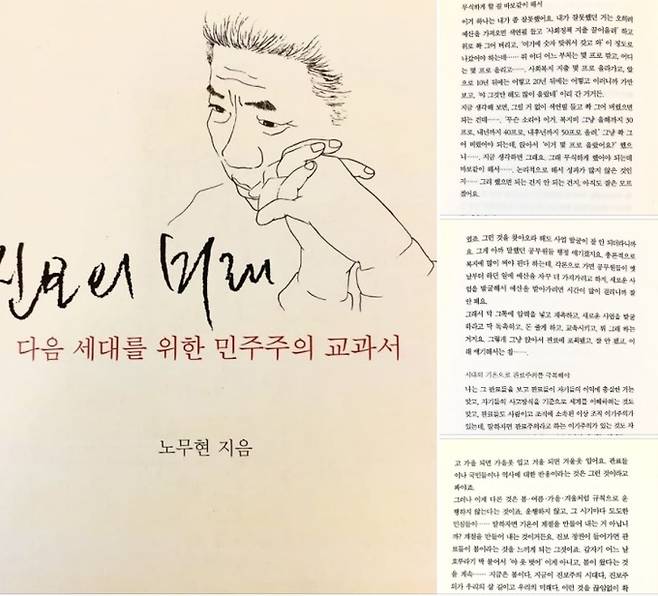 진보의 미래
다음 세대를 위한 민주주의 교과서
노무현 지음
무식하게 할 걸 바보같이 해서
이거 하나는 내가 좀 잘못했어요. 내가 잘못했던 거는 오히려
예산을 가져오면 색연필 들고 '사회정책 지출 끌어올려' 하고
위로 확 그어 버리고, '여기에 숫자 맞춰서 갖고 와' 이 정도로
나갔어야 하는데…… 뭐 어디 어느 부처는 몇 프로 깎고, 어디
는 몇 프로 올리고……, 사회복지 지출 몇 프로 올라가고, 앞
으로 10년 뒤에는 어떻고 20년 뒤에는 어떻고 이러니까 가만
보고, '야 그것만 해도 많이 올랐네' 이리 간 거거든.
지금 생각해 보면, 그럴 거 없이 색연필 들고 확 그어 버렸으면
되는 건데……. '무슨 소리야 이거, 복지비 그냥 올해까지 30
프로, 내년까지 40프로, 내후년까지 50프로 올려.' 그냥 확 그
어 버렸어야 되는데, 앉아서 '이거 몇 프로 올랐어요?' 했으
니……. 지금 생각하면 그래요. 그래 무식하게 했어야 되는데
바보같이 해서……. 논리적으로 해서 성과가 많지 않은 것인
지…… 그리 했으면 되는 건지 안 되는 건지, 아직도 잘은 모르
겠어요.
없죠. 그런 것을 찾아오라 해도 사업 발굴이 잘 안 되더라니까
요. 그게 아까 말했던 공무원들 행정 얘기겠지요. 총론적으로
복지에 많이 써야 된다 하는데, 각론으로 가면 공무원들이 옛
날부터 하던 일에 예산을 자꾸 더 가지려고 하지, 새로운 사
업을 발굴해서 예산을 받아가려면 시간이 많이 걸리니까 잘
안 돼요.
그래서 딱 그쪽에 압력을 넣고 재촉하고, 새로운 사업을 발굴
하라고 막 독촉하고, 돈 줄게 하고, 교육시키고, 뭐 그래 하는
거지요. 그렇게 그냥 앉아서 관료에 포획됐고, 잘 안 됐고, 이
래 얘기해서는 참…….
시대의 기운으로 관료주의를 극복해야
나는 그 관료들을 보고 관료들이 자기들의 이익에 충실한 거는
맞고, 자기들의 사고방식을 기준으로 세계를 이해하려는 것도
맞고, 관료들도 사람이고 조직에 소속된 이상 조직 이기주의가
있는데, 말하자면 관료주의라고 하는 이기주의가 있는 것도 자
고 가을 되면 가을옷 입고 겨울 되면 겨울옷 입어요. 관료들
이나 국민들이나 역사에 대한 반응이라는 것은 그런 것이라고
봐야죠.
그러나 이게 다른 것은 봄·여름·가을·겨울처럼 규칙으로 운
행하지 않는다는 것이죠. 운행하지 않고, 그 시기마다 도도한
민심들이…… 말하자면 기운이 계절을 만들어 내는 거 아닙니
까? 계절을 만들어 내는 것이거든요. 진보 정권이 들어가면 관
료들이 봄이라는 것을 느끼게 되는 그것이죠. 갑자기 어느 날
호루라기 딱 불어서 '야 옷 벗어' 이게 아니고, 봄이 왔다는 것
을 계속…… 지금은 봄이다, 지금이 진보주의 시대다, 진보주
의가 우리의 살 길이고 우리의 미래다. 이런 것을 끊임없이 확